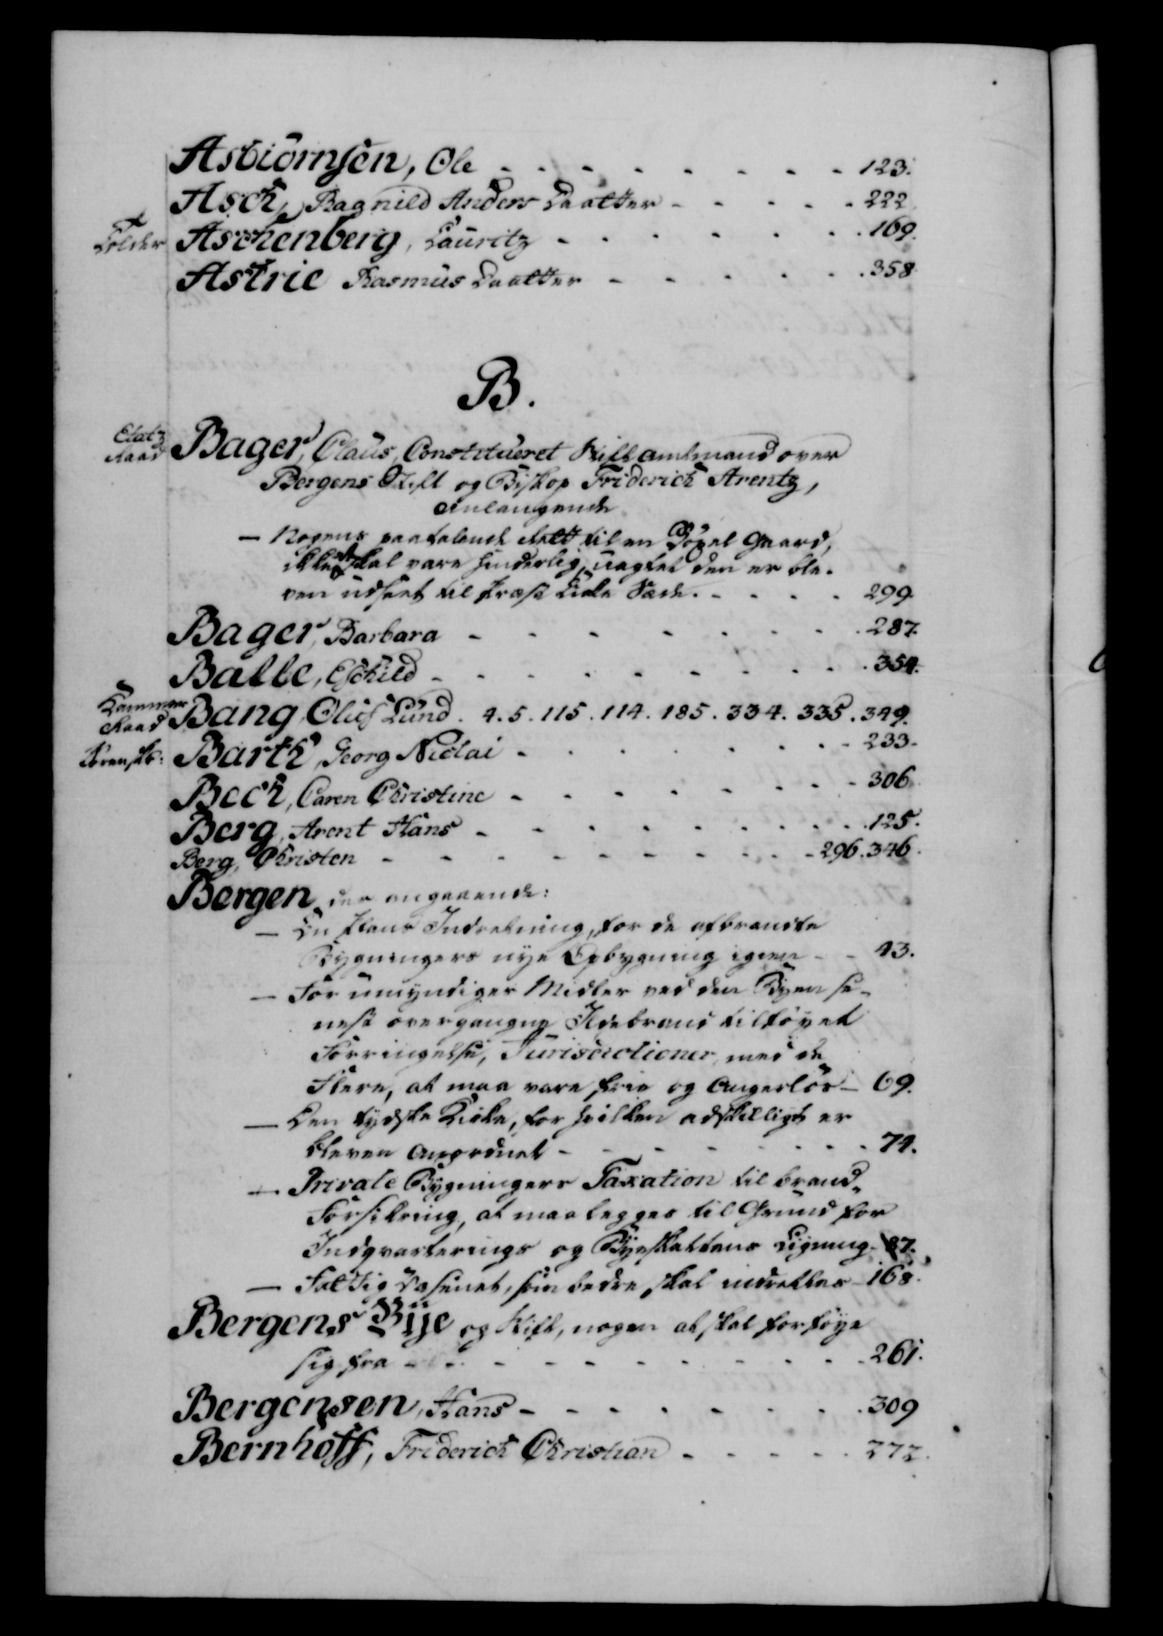 Asbiörnsen, Ole - - - - - - - - - 123.
Asch, Ragnild Anders Daatter - - - - - 222
Tolder Aschenberg, Lauritz - - - - - - - 169.
Astrie Rasmus Daatter - - - - - - 358
B.
Etatz Raad Bager, Claus, Constitueret Stiftamtmand over
Bergens Stift og Biskop Friderich Arentz,
anlangende
— Nogens paatalende Rett til en Gaard,
ikke skal være hinderlig, uagtet den er ble-
ven udseet til Præste Enke Sæde. - - - - 299.
Bager, Barbara - - - - - - - - 287.
Balle, Eschild - - - - - - - - - 354.
Kammer Raad Bang, Oluf Lund. 4. 5. 115. 114. 185. 334. 335. 349.
Barth, Georg Nicolai - - - - - - - 233.
Bech, Caren Christine - - - - - - - 306
Berg, Arent Hans - - - - - - - - - 125.
Berg, Christen - - - - - - - - - 296. 346.
Bergen, der angaaende:
— En Plans Indretning, for de afbrændte
Bygningers nye Opbygning igien - - 43.
— For umyndiges Midler ved den Byen se-
nest overgangne Ildebrand tilføyet
Forringelse, Jurisdictioner, med de
Flere, at maa være frie og Angerløs - 69.
— Den tydske Kirke, for hvilken adskilligt er
bleven anordnet - - - - - - - 74.
— Private Bygningers Taxation til brand-
Forsikring, at maa legges til Grund for
Indqvarterings og Byeskattens Ligning - 87.
— Fattig Væsenet, som bedre skal indrettes - 168.
Bergens Bÿe og Stift, nogen at skal forføye
sig fra - - - - - - - - - - 261.
Bergensen, Hans - - - - - - - - 309
Bernhoff, Friderich Christian - - - - - 272.